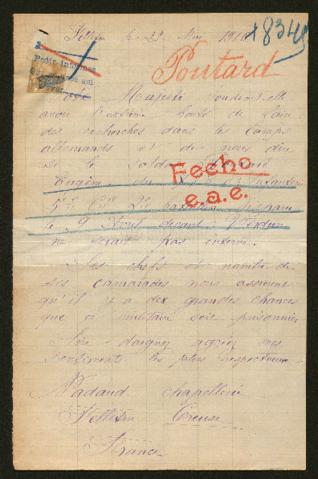 Felletin le 29 Mai 1916
+8345
Poutard
Majesté voudrait-elle
avoir l'extrême bonté de faire
des recherches dans les camps
allemands et de nous dire
si le soldat
Eugène du
5e Cie 2e bataillon disparu
le 9 devant Verdun
ne serait pas enterré
Fecho
e.a.e.
Ses chefs et nombre de
ses camarades nous assurent
qu'il y a dix grandes chances
que ce militaire soit prisonnier
Sire daignez agréer mes
sentiments les plus respectueux
Nadaud chapellerie
Felletin Creuse
France